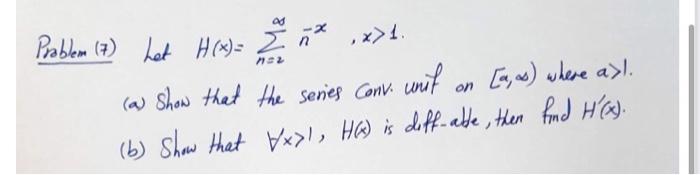 Problem (7) Let H(x) = ∞ Σ n=2 n^-x , x>1.
(a) Show that the series conv. unif on [a,∞) where a>1.
(b) Show that ∀x>1, H(x) is diff-able, then find H'(x).